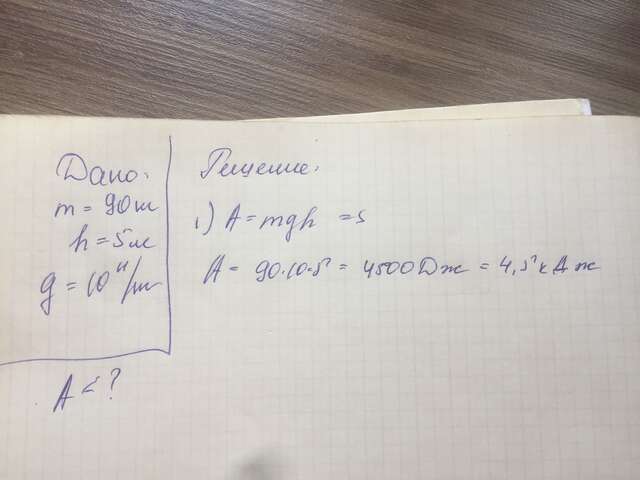 Дано:
m = 90 кг
h = 5 м
g = 10 Н/кг
A - ?
Решение:
1) A = mgh =>
A = 90·10·5 = 4500 Дж = 4,5 кДж